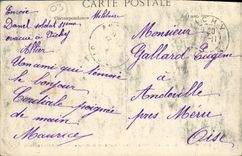 CARTE POSTALE
Correspondance
Envoie Militaire
Daniel soldat
évacué à Vichy
Allier
Un ami qui t'envoie
le bonjour
Cordiale poignée
de main
Maurice
Monsieur
Gallard Eugène
à
Andeville
près Meru
Oise